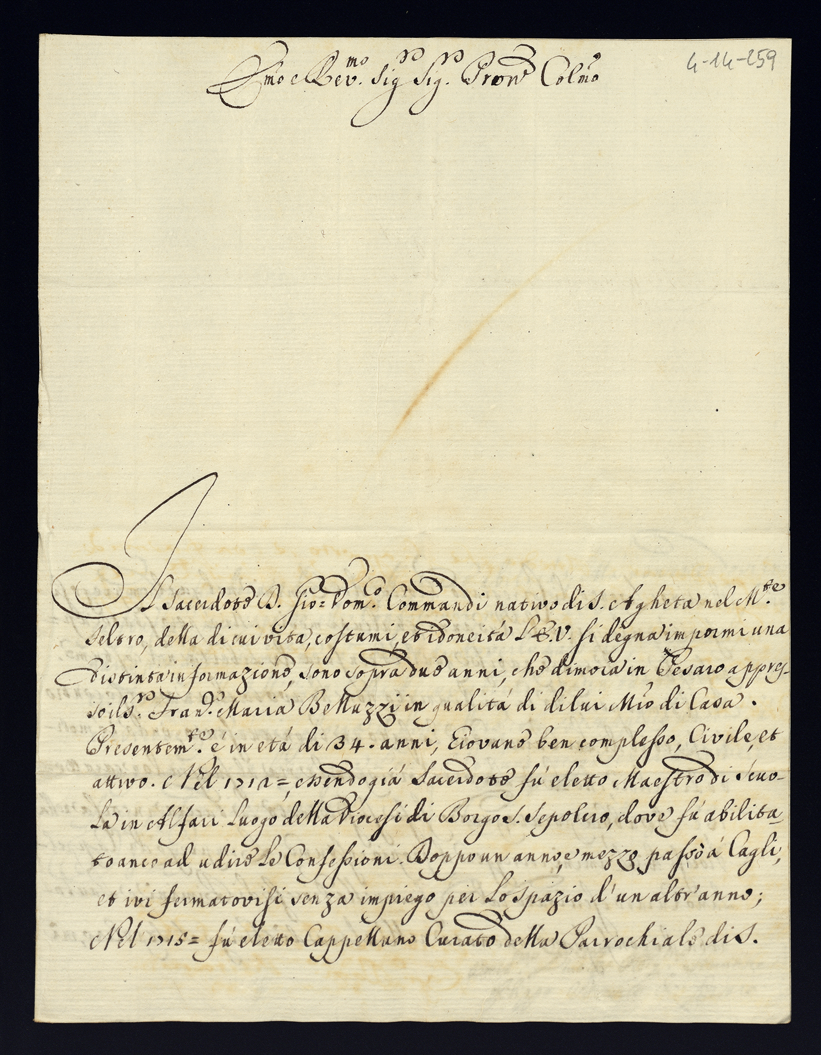 4-14-259
Emo e Rev.mo Sigre Sigr. Prone Colmo
Il Sacerdote D. Gio: Dom.co Commandi nativo di S. Agheta nel M.te
feltro, della di cui vita, costumi, et idoneitá L'E.V. si degna impormi una
distinta informazione, sono sopra due anni, che dimora in Pesaro appres-
so il Sr. Fran.co Maria Belluzzi in qualitá di di lui Mro di Casa.
Presentem.te é in etá di 34. anni, Giovane ben complesso, Civile, et
attivo. Nel 1712=, essendo giá Sacerdote fú eletto Maestro di Scuo-
la in Alfari luogo della Diocesi di Borgo S. Sepolcro, dove fú abilita-
to anco ad udire le Confessioni. Doppo un anno, e mezzo passò á Cagli,
et ivi fermatovisi senza impiego per lo spazio d'un altr'anno;
Nel 1715= fú eletto Cappellano Curato della Parrochiale di S.